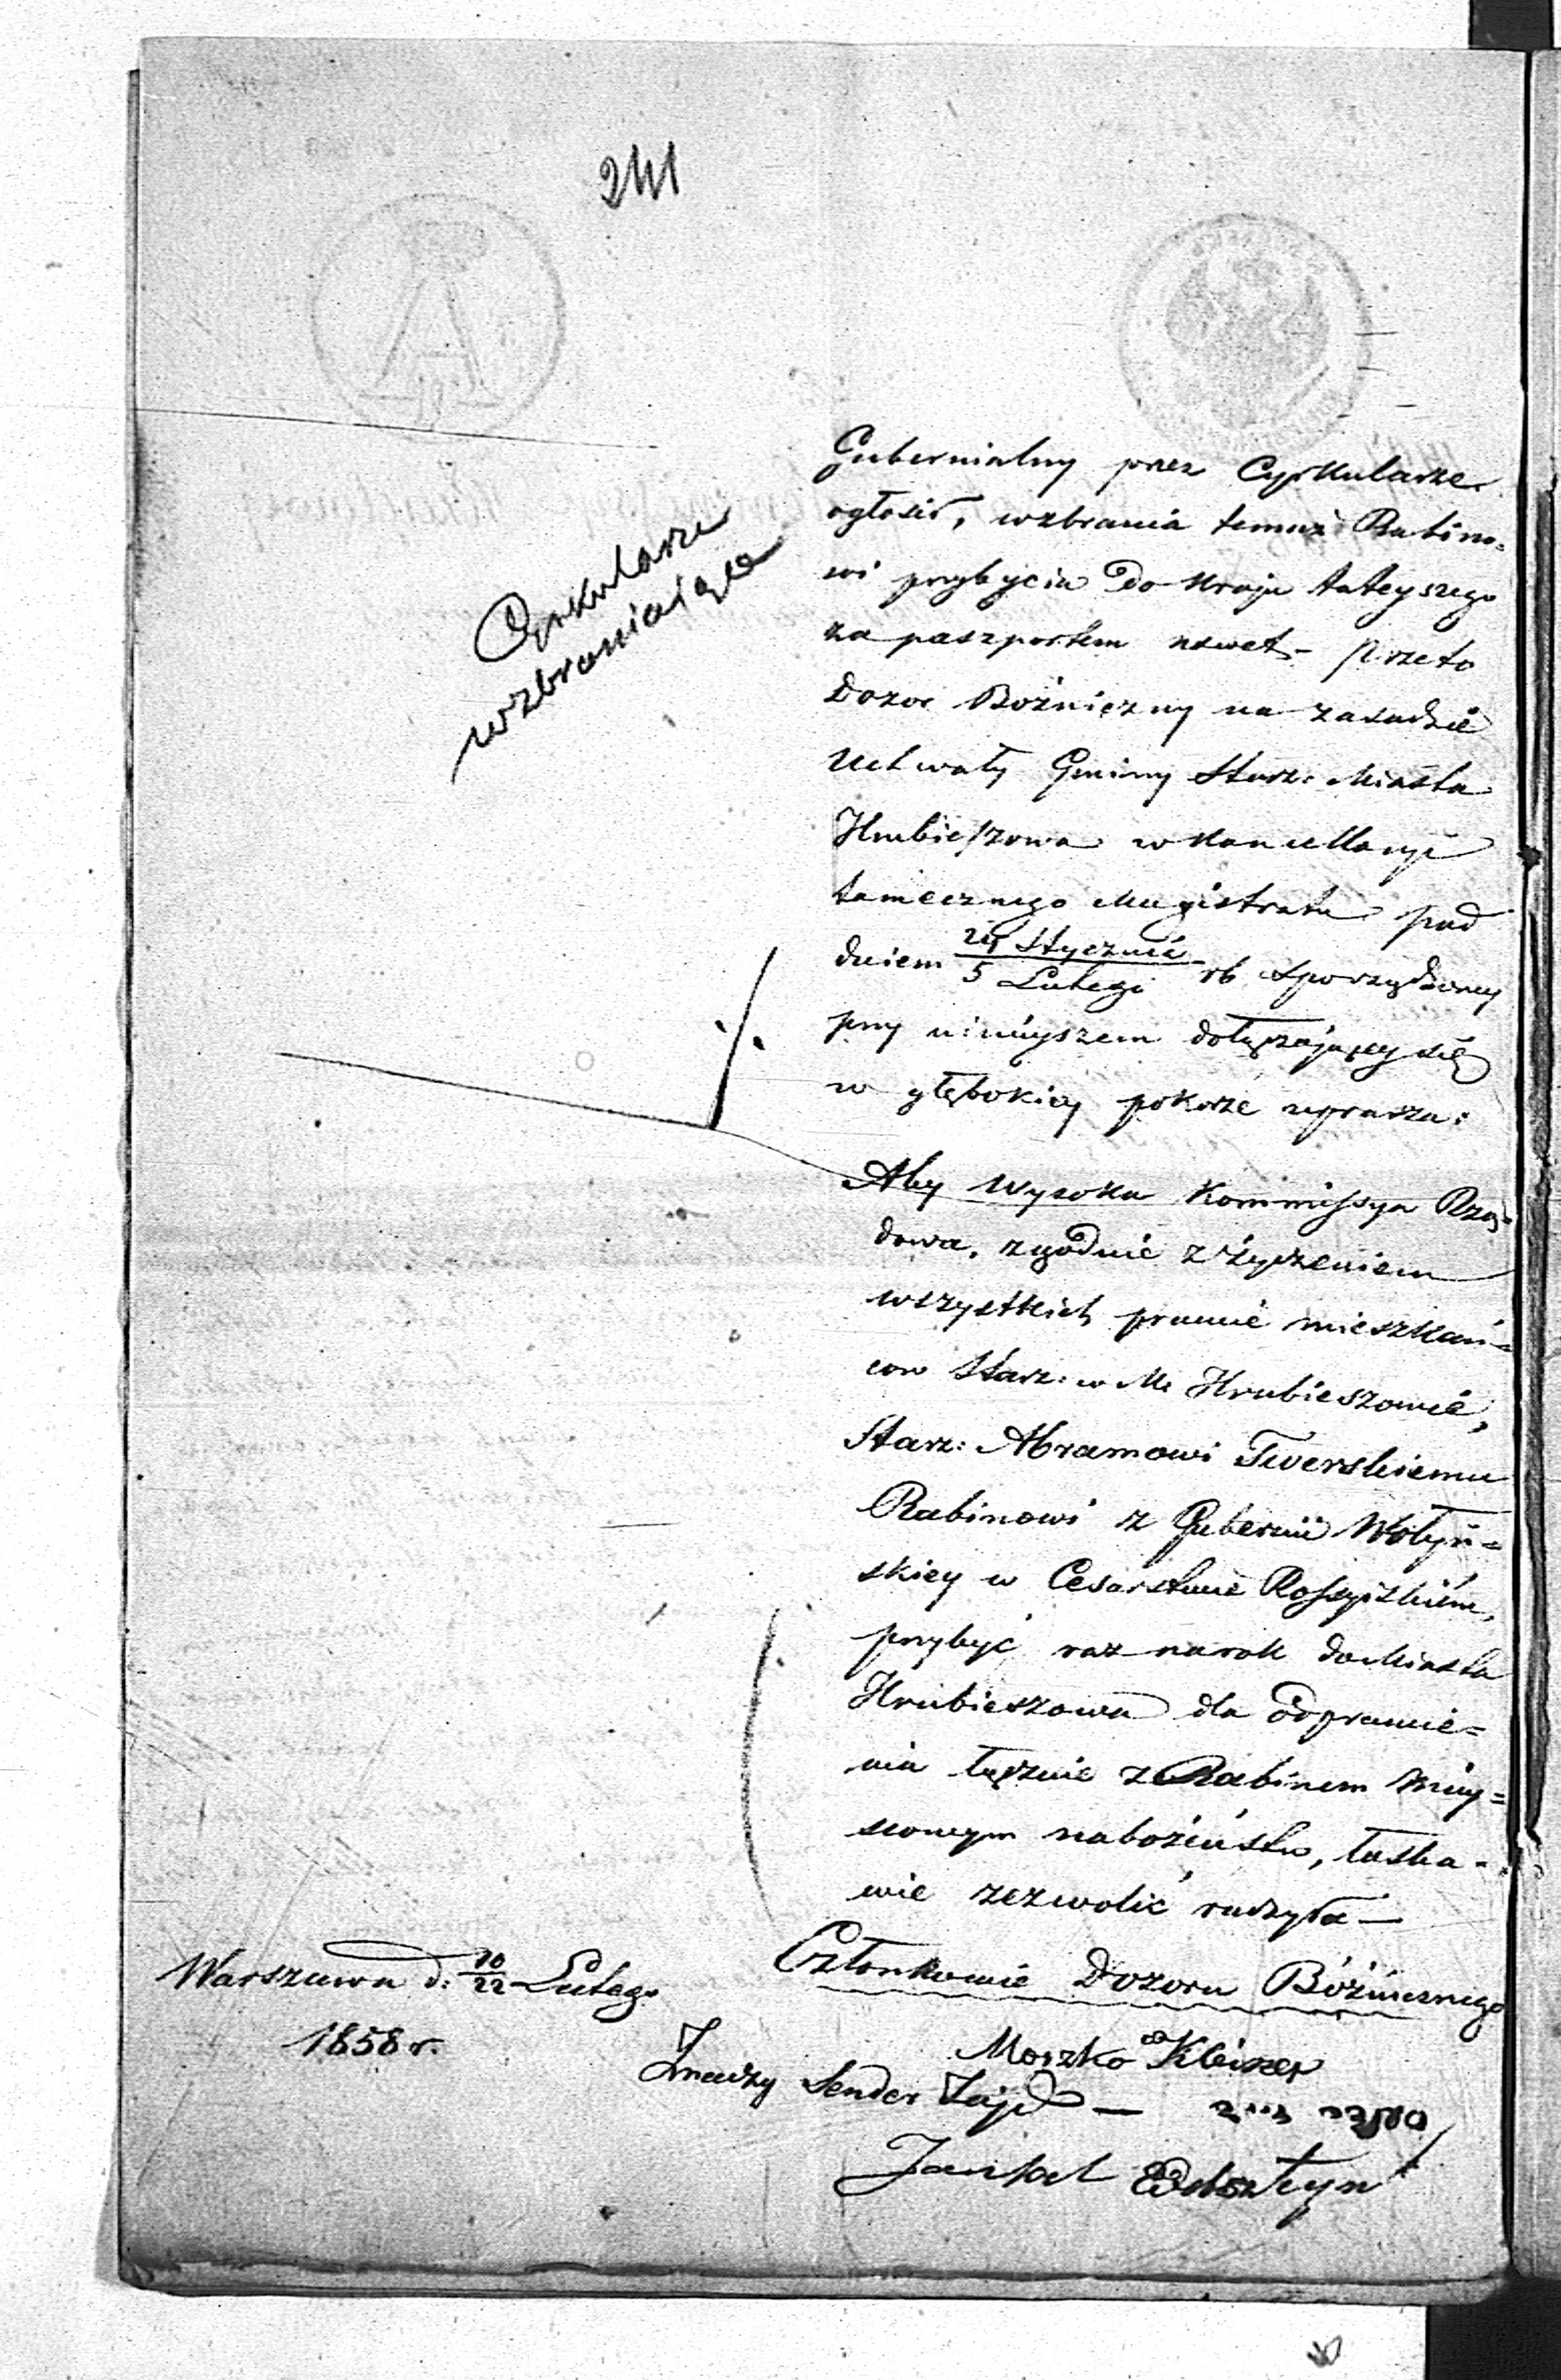 241
Cyrkularze
wzbraniaiące
Gubernialny przez Cyrkularze
ogłosił, wzbrania temuż Rabino-
wi przybycia do Kraju tuteyszego
za paszportem nawet – przeto
Dozór Bóżniczny na zasadzie
Uchwały Gminy Starz: Miasta
Hrubieszowa w Kancellaryi
tamecznego Magistratu pod
dniem 24 Stycznia / 5 Lutego rb sporządzoney
przy ninieyszem dołączającey się
w głębokiey pokorze uprasza:
Aby Wysoka Kommissya Rzą-
dowa, zgodnie z życzeniem
wszystkich prawie mieszkań-
ców Starz: w M. Hrubieszowie,
Starz: Abramowi Twerskiemu
Rabinowi z Gubernii Wołyń-
skiey w Cesarstwie Rossyiskiem,
przybyć raz na rok do Miasta
Hrubieszowa dla odprawie-
nia łącznie z Rabinem miey-
scowym nabożeństw, łaska-
wie zezwolić raczyła –
Członkowie Dozoru Bóżnicznego
Warszawa d: 10/22 Lutego
1858 r.
Moszko Kleiner
Sender Zajd –
Jankel Edelsztyn